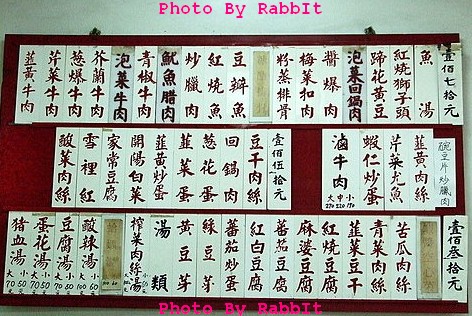 Photo By RabbIt
壹佰七十元
魚湯
紅燒獅子頭
蹄花黃豆
泡菜回鍋肉
醬爆肉
梅菜扣肉
粉蒸排骨
豆瓣魚
紅燒魚
炒臘肉
魷魚腊肉
青椒牛肉
泡菜牛肉
芥蘭牛肉
葱爆牛肉
芹菜牛肉
韮黃牛肉
豌豆片炒臘肉
韮黃肉絲
芹菜尤魚
蝦仁炒蛋
滷牛肉 大中小 270 220 170
壹佰伍十元
豆干肉絲
回鍋肉
葱花蛋
韮菜蛋
韮黃炒蛋
開陽白菜
家常豆腐
雪裡紅
酸菜肉絲
壹佰叁拾元
苦瓜肉絲
青菜肉絲
紅燒豆干
麻婆豆腐
蕃茄豆腐
紅白豆腐
蕃茄炒蛋
綠豆芽
黃豆芽
湯類
榨菜肉絲湯
酸辣湯 大100 小60
豆腐湯 大70 小50
蛋花湯 大70 小50
豬血湯 大70
Photo By RabbIt